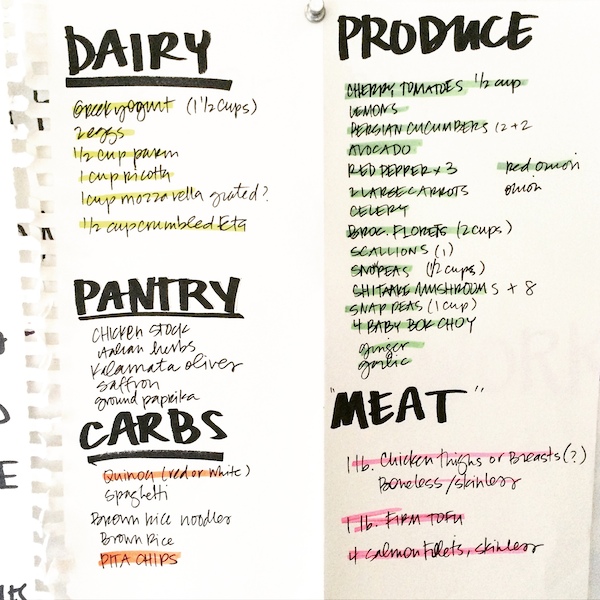 DAIRY
Greek yogurt (1 1/2 cups)
2 eggs
1/2 cup parm
1 cup ricotta
1 cup mozzarella grated?
1/2 cup crumbled feta
PANTRY
Chicken stock
Italian herbs
Kalamata olives
Saffron
ground paprika
CARBS
Quinoa (red or white)
Spaghetti
Brown rice noodles
Brown Rice
PITA CHIPS
PRODUCE
CHERRY TOMATOES 1/2 cup
LEMONS
PERSIAN CUCUMBERS 12 + 2
AVOCADO
RED PEPPER x 3 red onion
2 LARGE CARROTS onion
CELERY
BROC. FLORETS (2 cups)
SCALLIONS (1)
SNOPEAS (1/2 cups)
SHITAKE MUSHROOMS + 8
SNAP PEAS (1 cup)
4 BABY BOK CHOY
ginger
garlic
"MEAT"
1 lb. Chicken thighs or Breasts (?)
Boneless/skinless
1 lb. FIRM TOFU
4 salmon filets, skinless